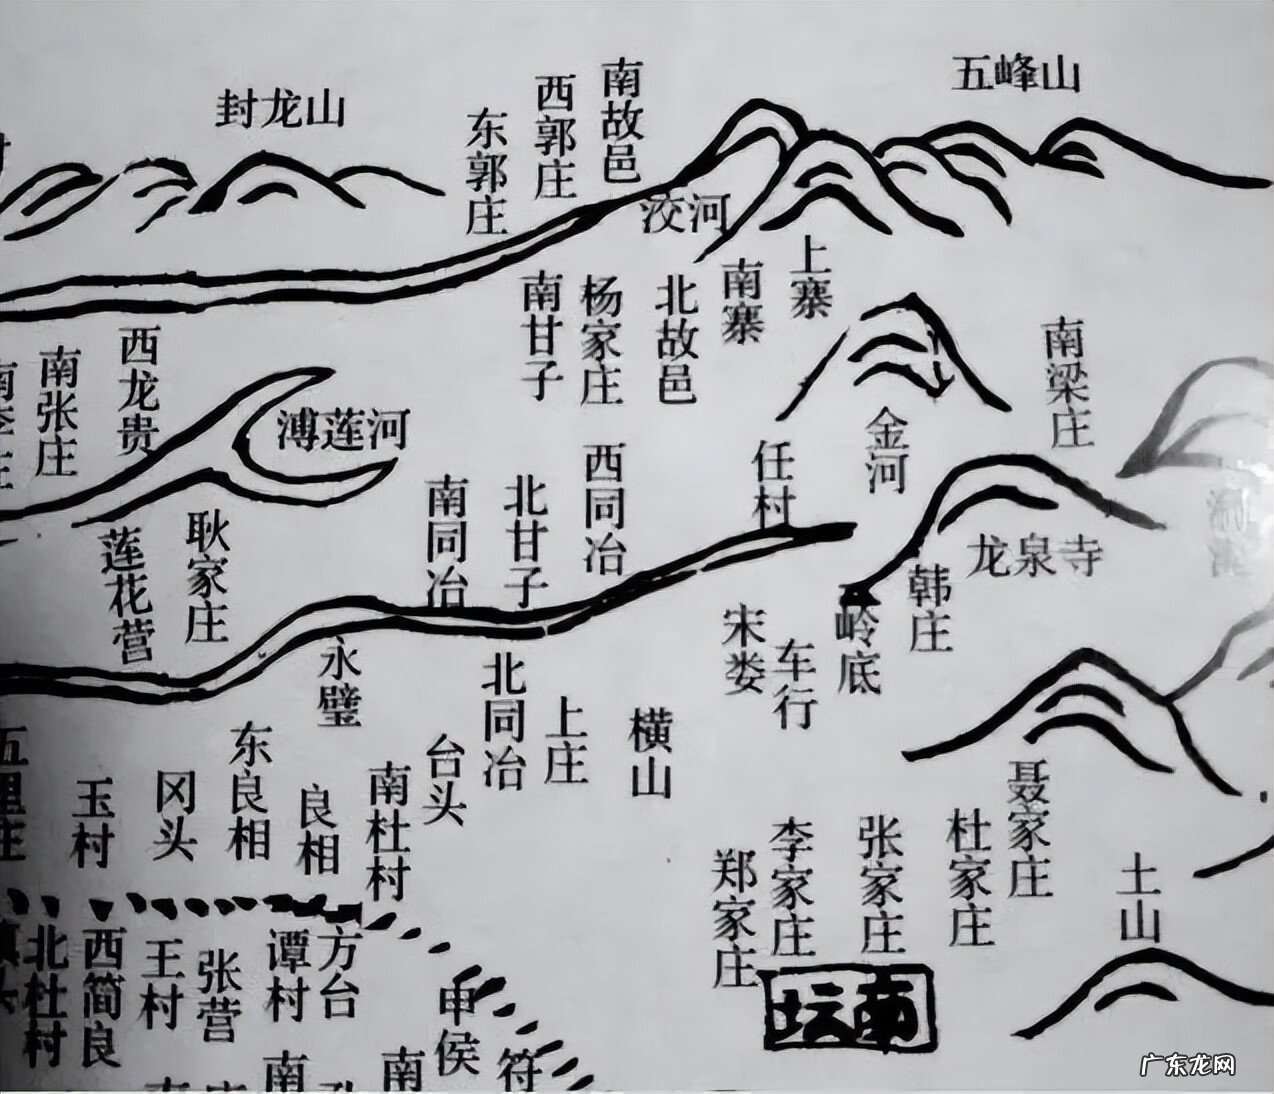 封龙山
五峰山
东郭庄
西郭庄
南故邑
洨河
南甘子
杨家庄
北故邑
南寨
上寨
南梁庄
南张庄
西龙贵
溥莲河
金河
任村
西同冶
北甘子
南同冶
耿家庄
莲花营
龙泉寺
韩庄
岭底
宋娄
车行
永壁
北同冶
上庄
横山
台头
南杜村
良相
东良相
冈头
玉村
五里庄
聂家庄
杜家庄
张家庄
李家庄
郑家庄
土山
南坛
北杜村
西简良
王村
张营
谭村
方台
申侯
符
南
南
广东龙网